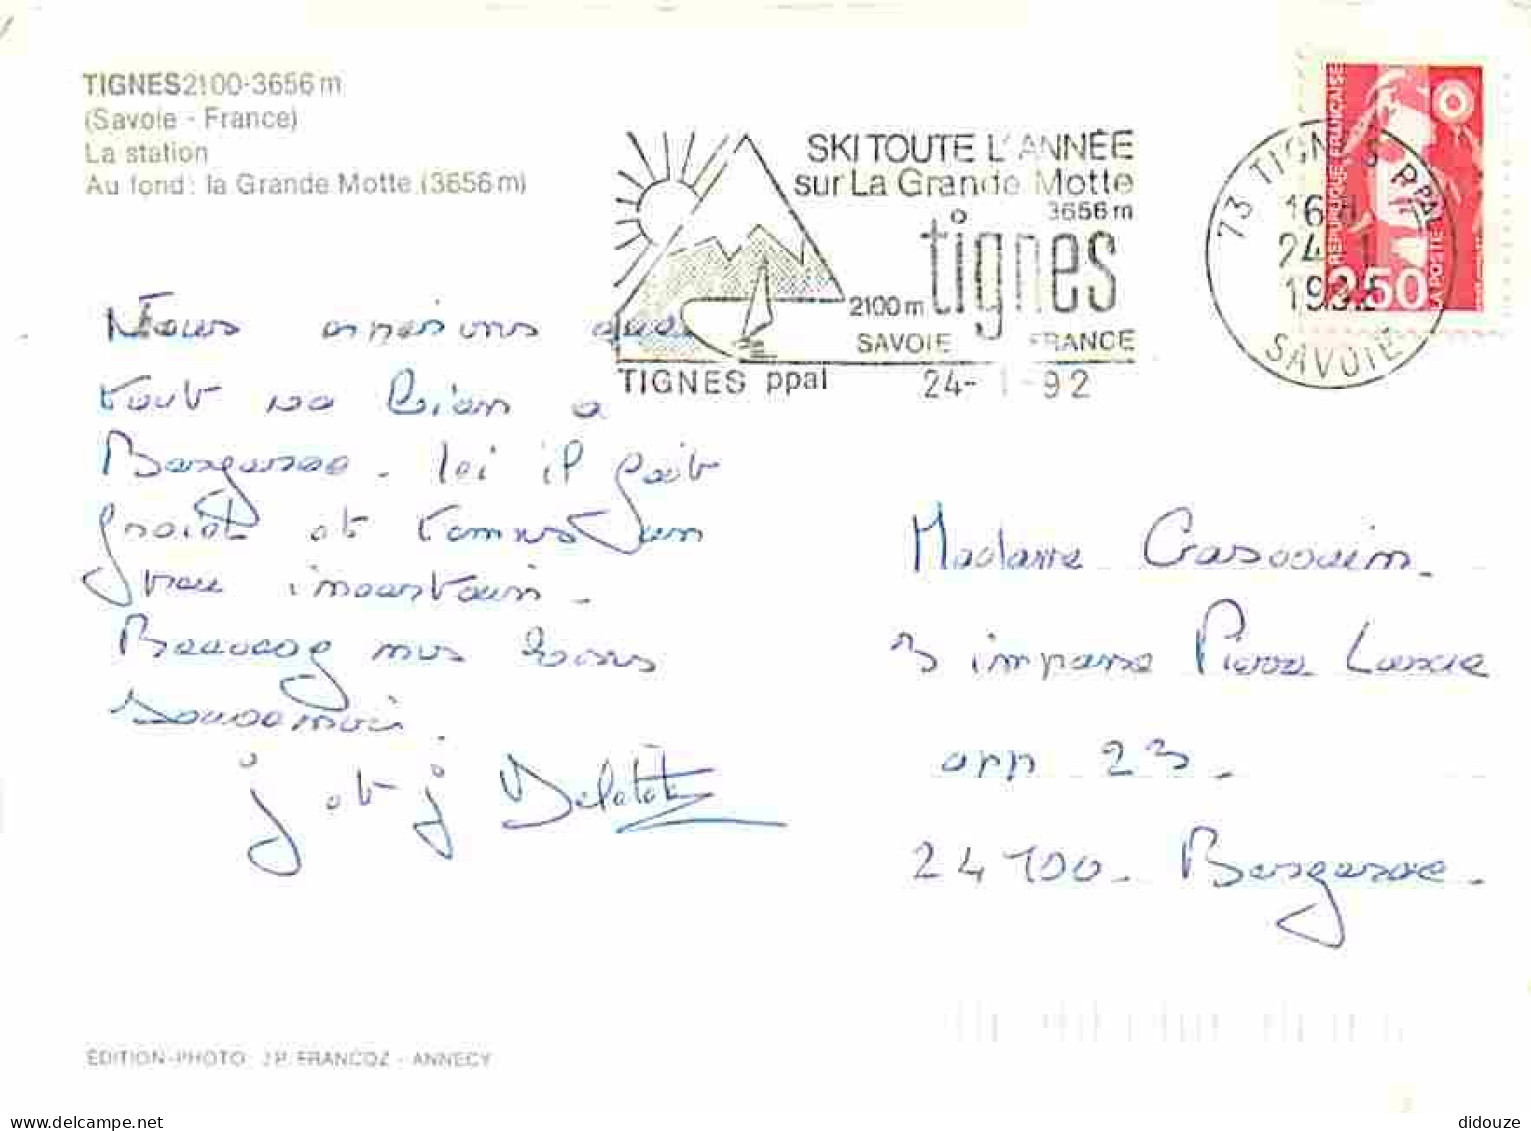 TIGNES 2100-3656 m
(Savoie - France)
La station
Au fond : la Grande Motte (3656 m)
SKI TOUTE L'ANNÉE
sur La Grande Motte
3656 m
tignes
2100 m
SAVOIE FRANCE
TIGNES ppal 24-1-92
73 TIGNES PPAL
16H
24-1
1992
SAVOIE
REPUBLIQUE FRANÇAISE
2,50
LA POSTE
Nous espérons que
tout va bien à
Bergerac. Ici il fait
froid et temps
incertain.
Beaucoup nos bons
souvenirs.
j et j Delatte
Madame
3 impasse Pierre
app 23.
24100. Bergerac.
ÉDITION-PHOTO J.P. FRANCOZ - ANNECY
didouze